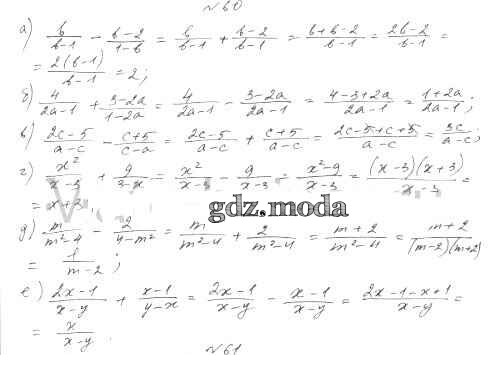 №60
а) b/(b-1) - (b-2)/(1-b) = b/(b-1) + (b-2)/(b-1) = (b+b-2)/(b-1) = (2b-2)/(b-1) =
= 2(b-1)/(b-1) = 2;
б) 4/(2a-1) + (3-2a)/(1-2a) = 4/(2a-1) - (3-2a)/(2a-1) = (4-3+2a)/(2a-1) = (1+2a)/(2a-1);
в) (2c-5)/(a-c) - (c+5)/(c-a) = (2c-5)/(a-c) + (c+5)/(a-c) = (2c-5+c+5)/(a-c) = 3c/(a-c);
г) x²/(x-3) + 9/(3-x) = x²/(x-3) - 9/(x-3) = (x²-9)/(x-3) = (x-3)(x+3)/(x-3) =
= x+3.
gdz.moda
д) m/(m²-4) - 2/(4-m²) = m/(m²-4) + 2/(m²-4) = (m+2)/(m²-4) = (m+2)/(m-2)(m+2)
= 1/(m-2);
е) (2x-1)/(x-y) + (x-1)/(y-x) = (2x-1)/(x-y) - (x-1)/(x-y) = (2x-1-x+1)/(x-y) =
= x/(x-y).
№61